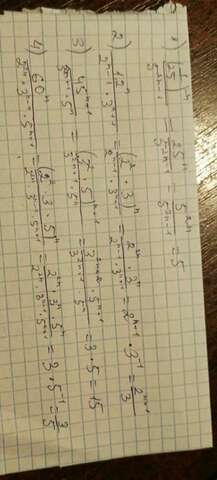 1) 25^n / 5^(2n-1) = 25^n / 5^(2n-1) = 5^(2n) / 5^(2n-1) = 5
2) 12^n / (2^(n-1) · 3^(n+1)) = (2² · 3)^n / (2^(n-1) · 3^(n+1)) = 2^(2n) · 3^n / (2^(n-1) · 3^(n+1)) = 2^(n+1) · 3^(-1) = 2^(n+1) / 3
3) 45^(n+1) / (3^(2n+1) · 5^n) = (3² · 5)^(n+1) / (3^(2n+1) · 5^n) = 3^(2n+2) · 5^(n+1) / (3^(2n+1) · 5^n) = 3 · 5 = 15
4) 60^n / (2^(2n) · 3^(n-1) · 5^(n+1)) = (2² · 3 · 5)^n / (2^(2n) · 3^(n-1) · 5^(n+1)) = 2^(2n) · 3^n · 5^n / (2^(2n) · 3^(n-1) · 5^(n+1)) = 3 · 5^(-1) = 3/5